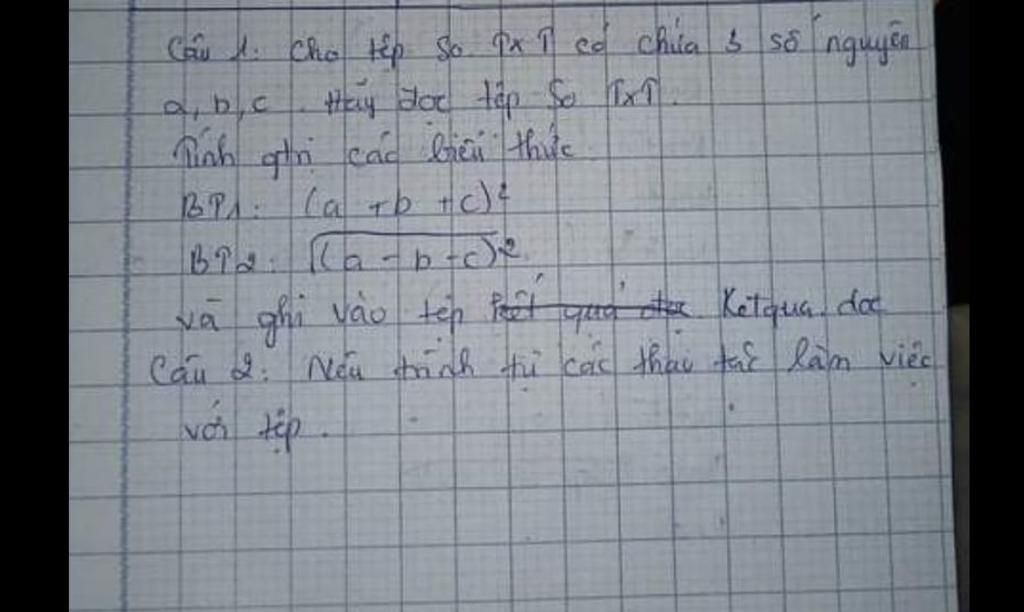 Câu 1: Cho tệp So TxT có chứa 3 số nguyên
a, b, c. Hãy đọc tệp So TxT.
Tính gtri các biểu thức
BT1: (a + b + c)²
BT2: √(a - b - c)²
và ghi vào tệp Ketqua. doc
Câu 2: Nêu trình tự các thao tác làm việc
với tệp.